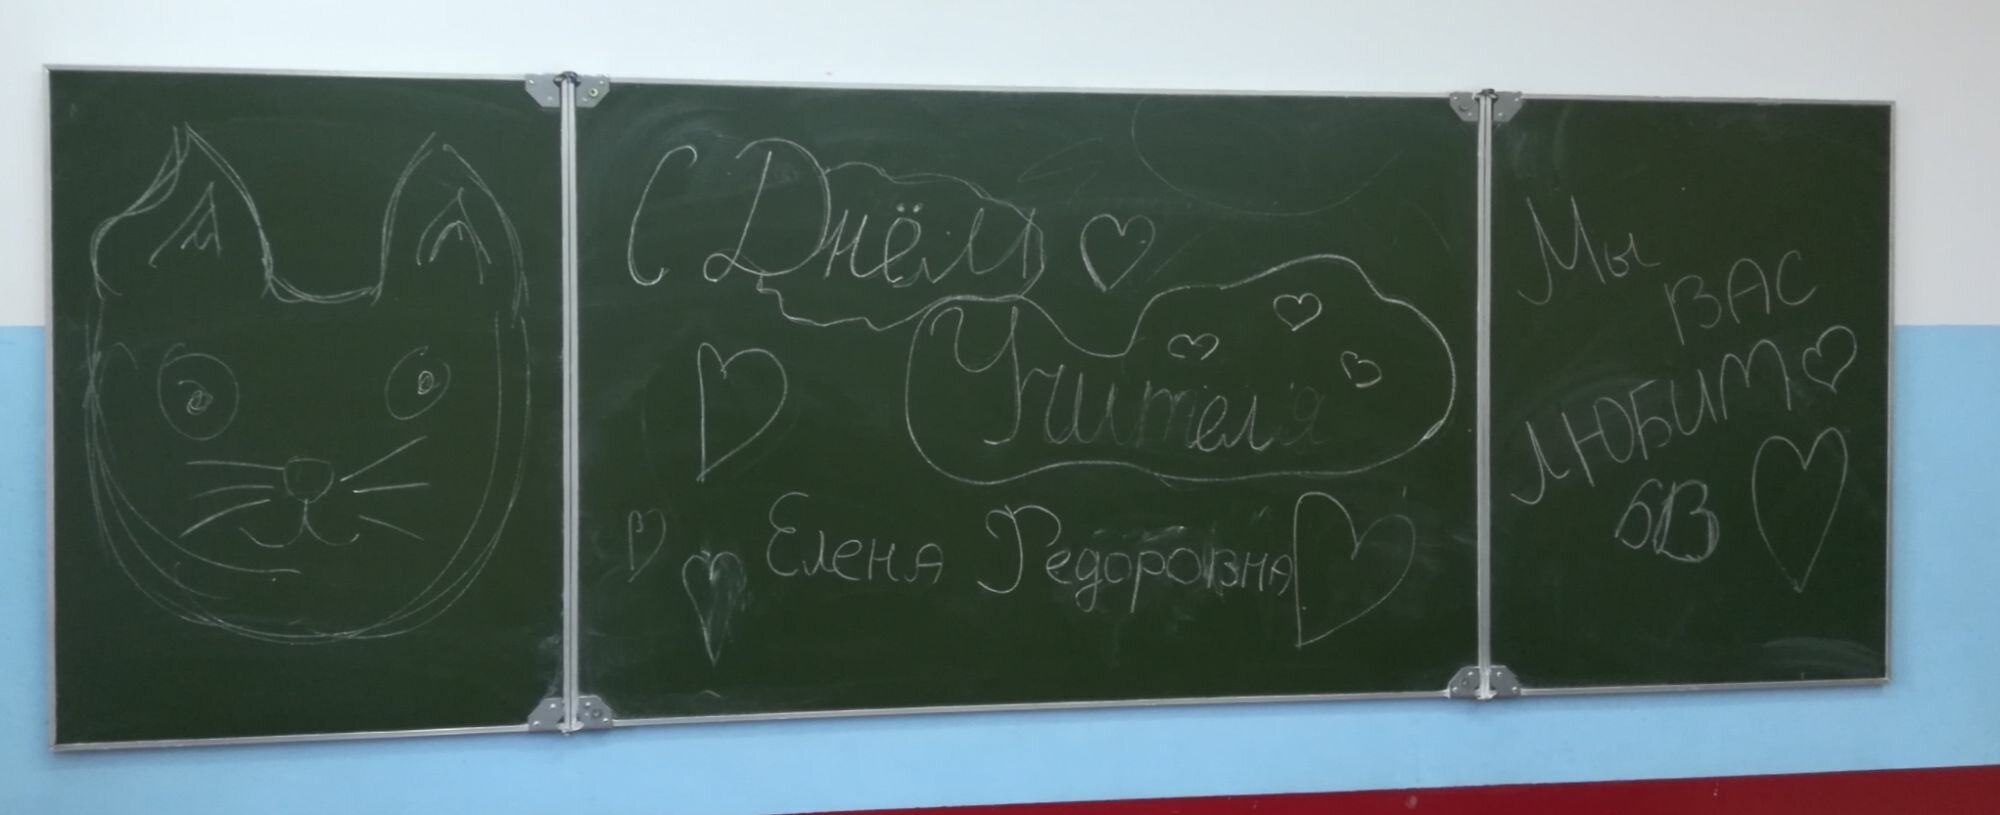 С Днём
Учителя
Елена Федоровна
Мы
ВАС
ЛЮБИМ
6В